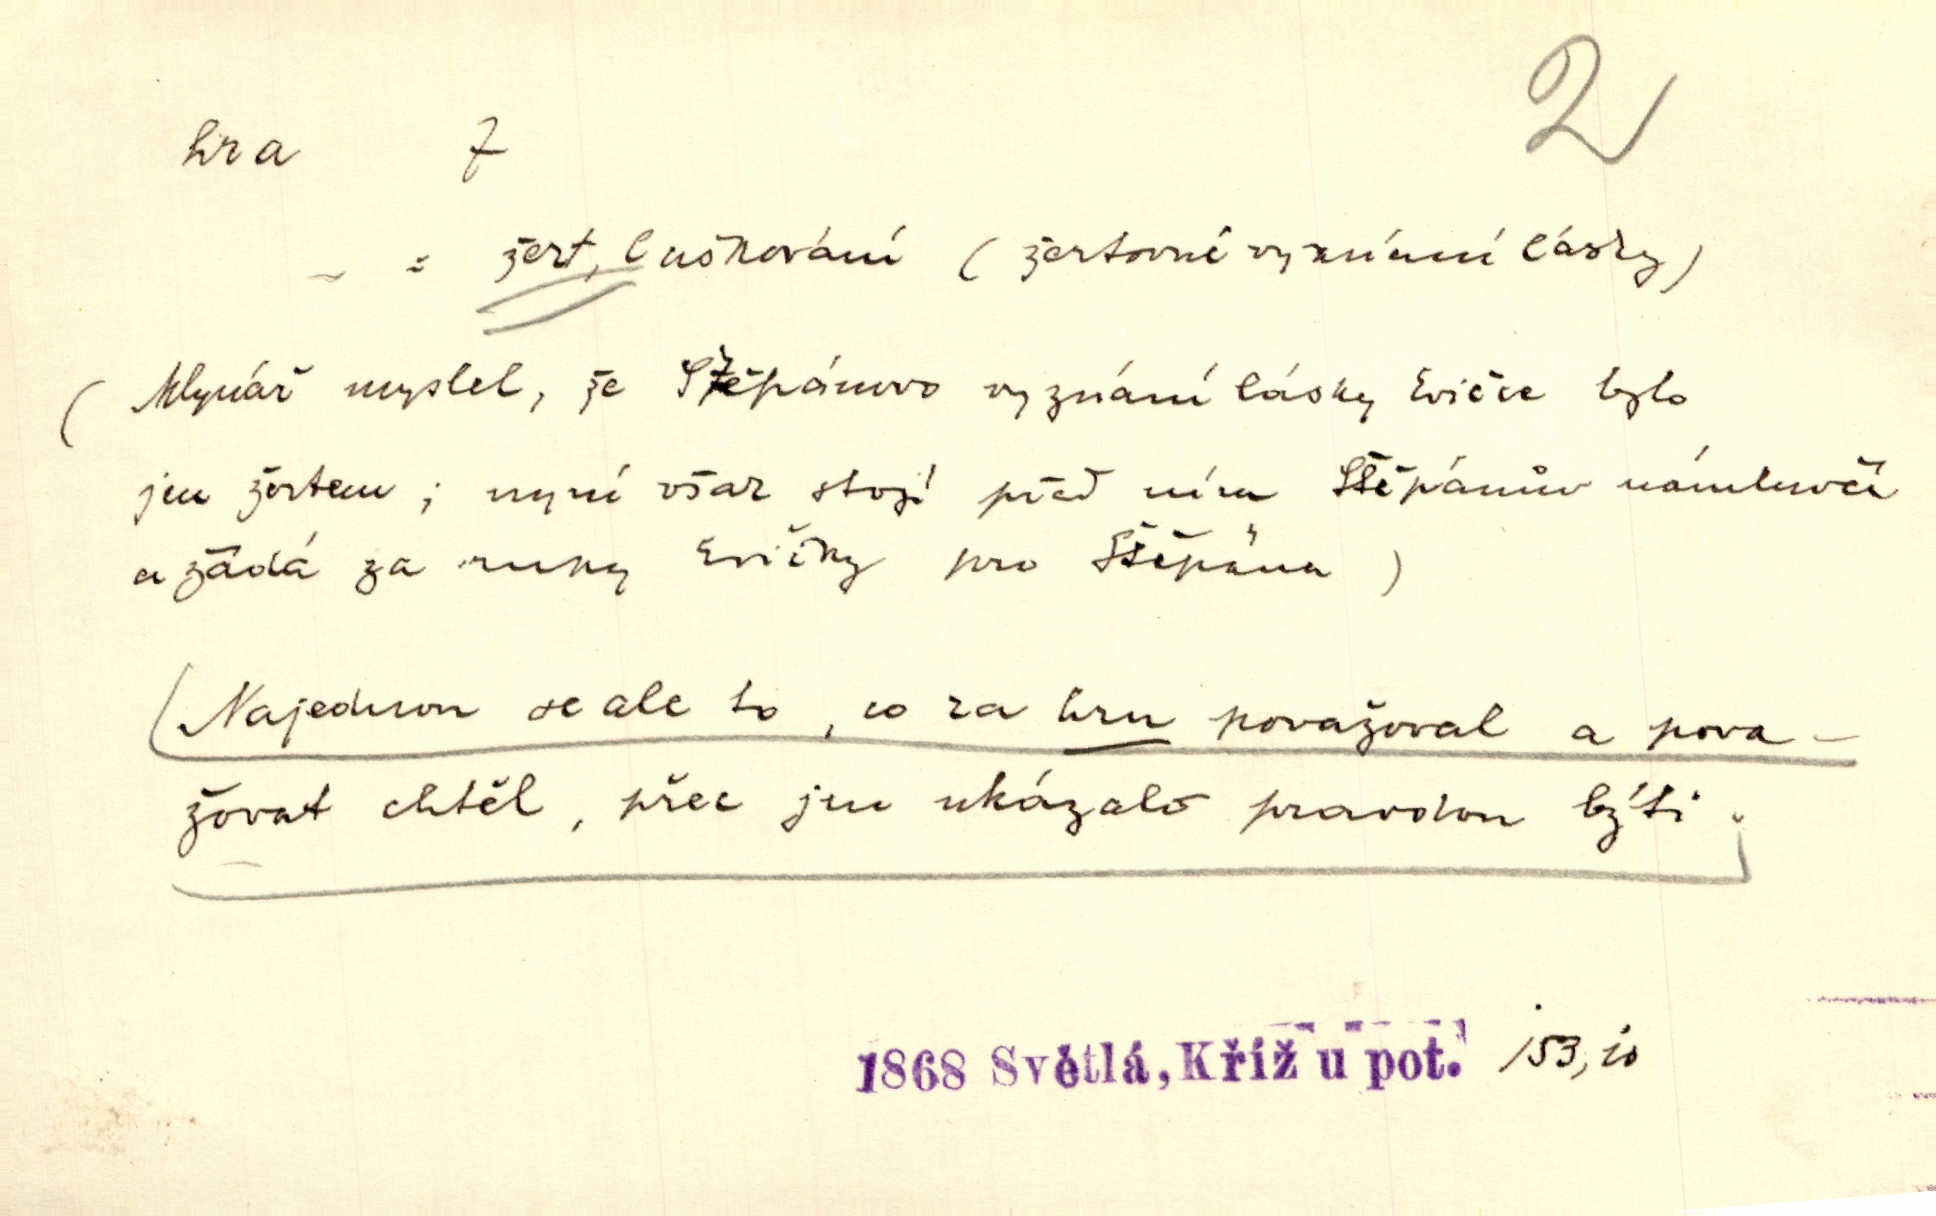 hra 7 2
- = žert, laškování (žertovné vyznání lásky)
( Mlynář myslel, že Štěpánovo vyznání lásky Evičce bylo
jen žertem ; nyní však stojí před ním Štěpánův námluvčí
a žádá za ruku Evičky pro Štěpána )
Najednou se ale to, co za hru považoval a pova-
žovat chtěl, přec jen ukázalo pravdou býti.
1868 Světlá, Kříž u pot. 153, 10